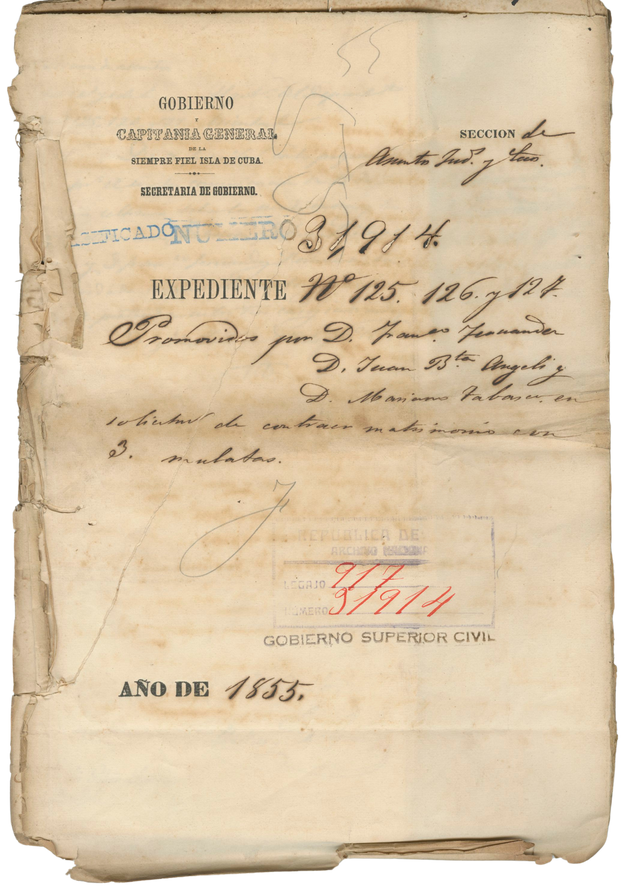 55
GOBIERNO
Y
CAPITANIA GENERAL
DE LA
SIEMPRE FIEL ISLA DE CUBA.
SECRETARIA DE GOBIERNO.
SECCION de
Asuntos Jud.s y
IFICADO NUMERO 31,914.
EXPEDIENTE Nº 125. 126. y 127.
Promovidos por D. Franco. Fernandez
D. Juan Bta. Angeli y
D. Mariano en
solicitud de contraer matrimonio con
3. mulatas.
REPUBLICA DE
ARCHIVO NACIONAL
LEGAJO 917
NUMERO 31914
GOBIERNO SUPERIOR CIVIL
AÑO DE 1855.